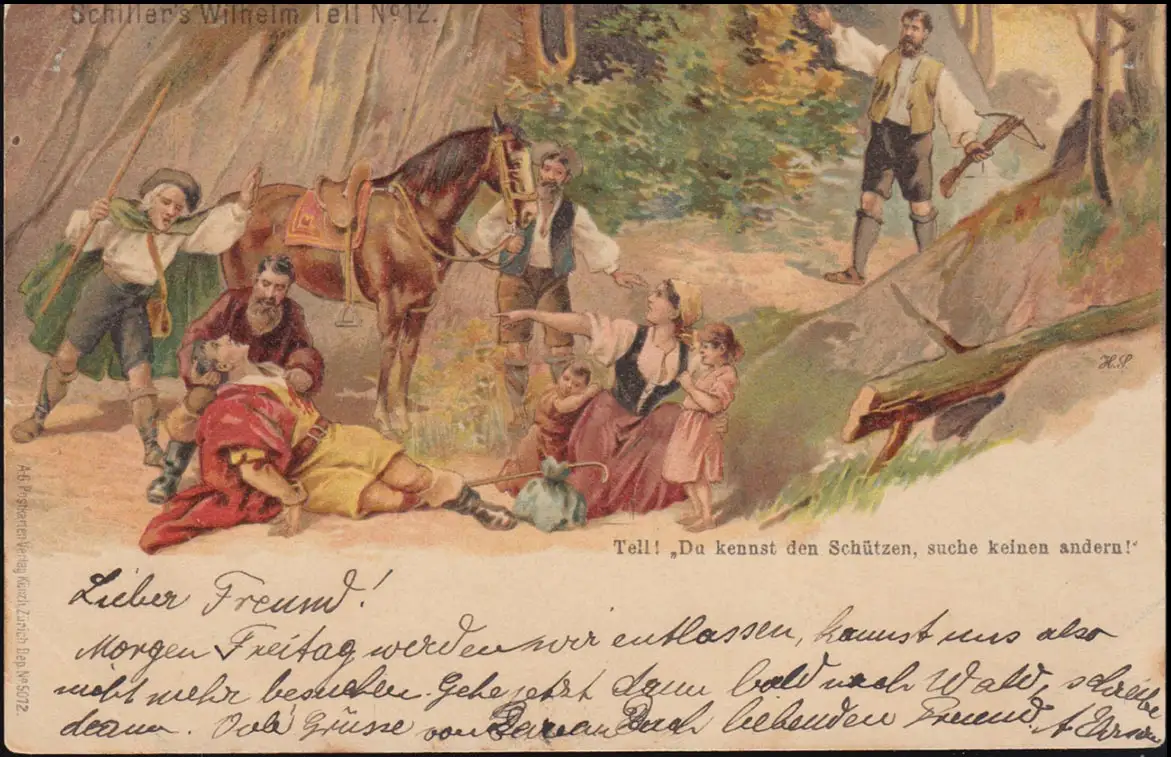 Schiller's Wilhelm Tell No 12.
H.S.
Tell! „Du kennst den Schützen, suche keinen andern!“
A.-G. Postkarten Verlag Künzli, Zürich Dep. No 5012.
Lieber Freund!
Morgen Freitag werden wir entlassen, kannst uns also
nicht mehr besuchen. Gehe jetzt dann bald nach Wald, schreibe
dann. Viele Grüsse von Deinem Dich liebenden Freund. A